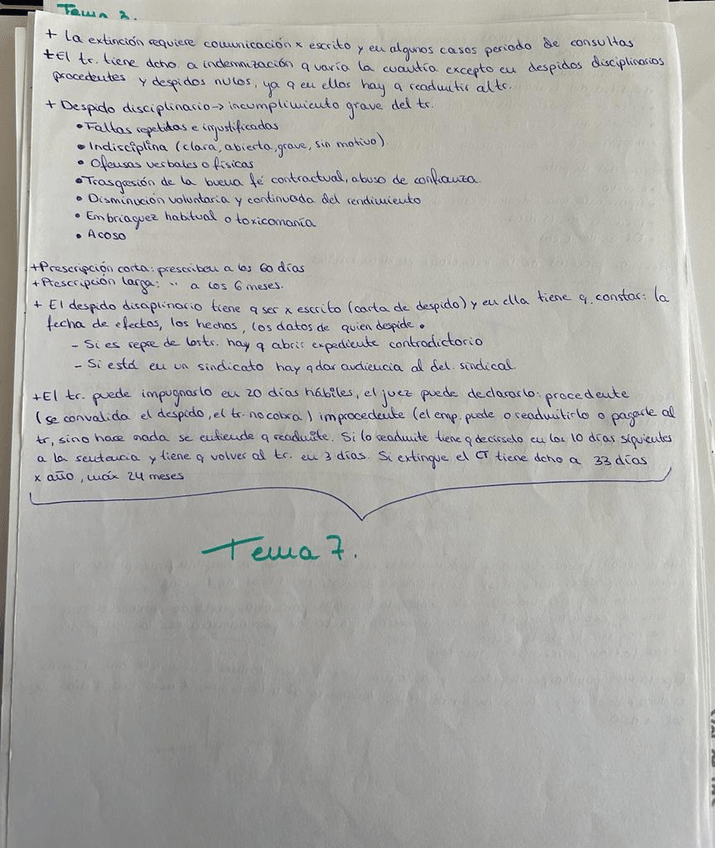 Tema 3.
+ La extinción requiere comunicación x escrito y en algunos casos periodo de consultas
+ El tr. tiene dcho. a indemnización q varía la cuantía excepto en despidos disciplinarios
procedentes y despidos nulos, ya q en ellos hay q readmitir al tr.
+ Despido disciplinario → incumplimiento grave del tr.
• Faltas repetidas e injustificadas
• Indisciplina (clara, abierta, grave, sin motivo)
• Ofensas verbales o físicas
• Trasgresión de la buena fé contractual, abuso de confianza
• Disminución voluntaria y continuada del rendimiento
• Embriaguez habitual o toxicomanía
• Acoso
+ Prescripción corta: prescriben a los 60 días
+ Prescripción larga: " a los 6 meses.
+ El despido disciplinario tiene q ser x escrito (carta de despido) y en ella tiene q. constar: la
fecha de efectos, los hechos, los datos de quien despide.
- Si es repre de los tr. hay q abrir expediente contradictorio
- Si está en un sindicato hay q dar audiencia al del. sindical
+ El tr. puede impugnarlo en 20 días hábiles, el juez puede declararlo: procedente
(se convalida el despido, el tr. no cobra) improcedente (el emp. puede o readmitirlo o pagarle al
tr, si no hace nada se entiende q readmite. Si lo readmite tiene q decirselo en los 10 días siguientes
a la sentencia y tiene q volver al tr. en 3 días. Si extingue el CT tiene dcho a 33 días
x año, máx 24 meses
Tema 7.